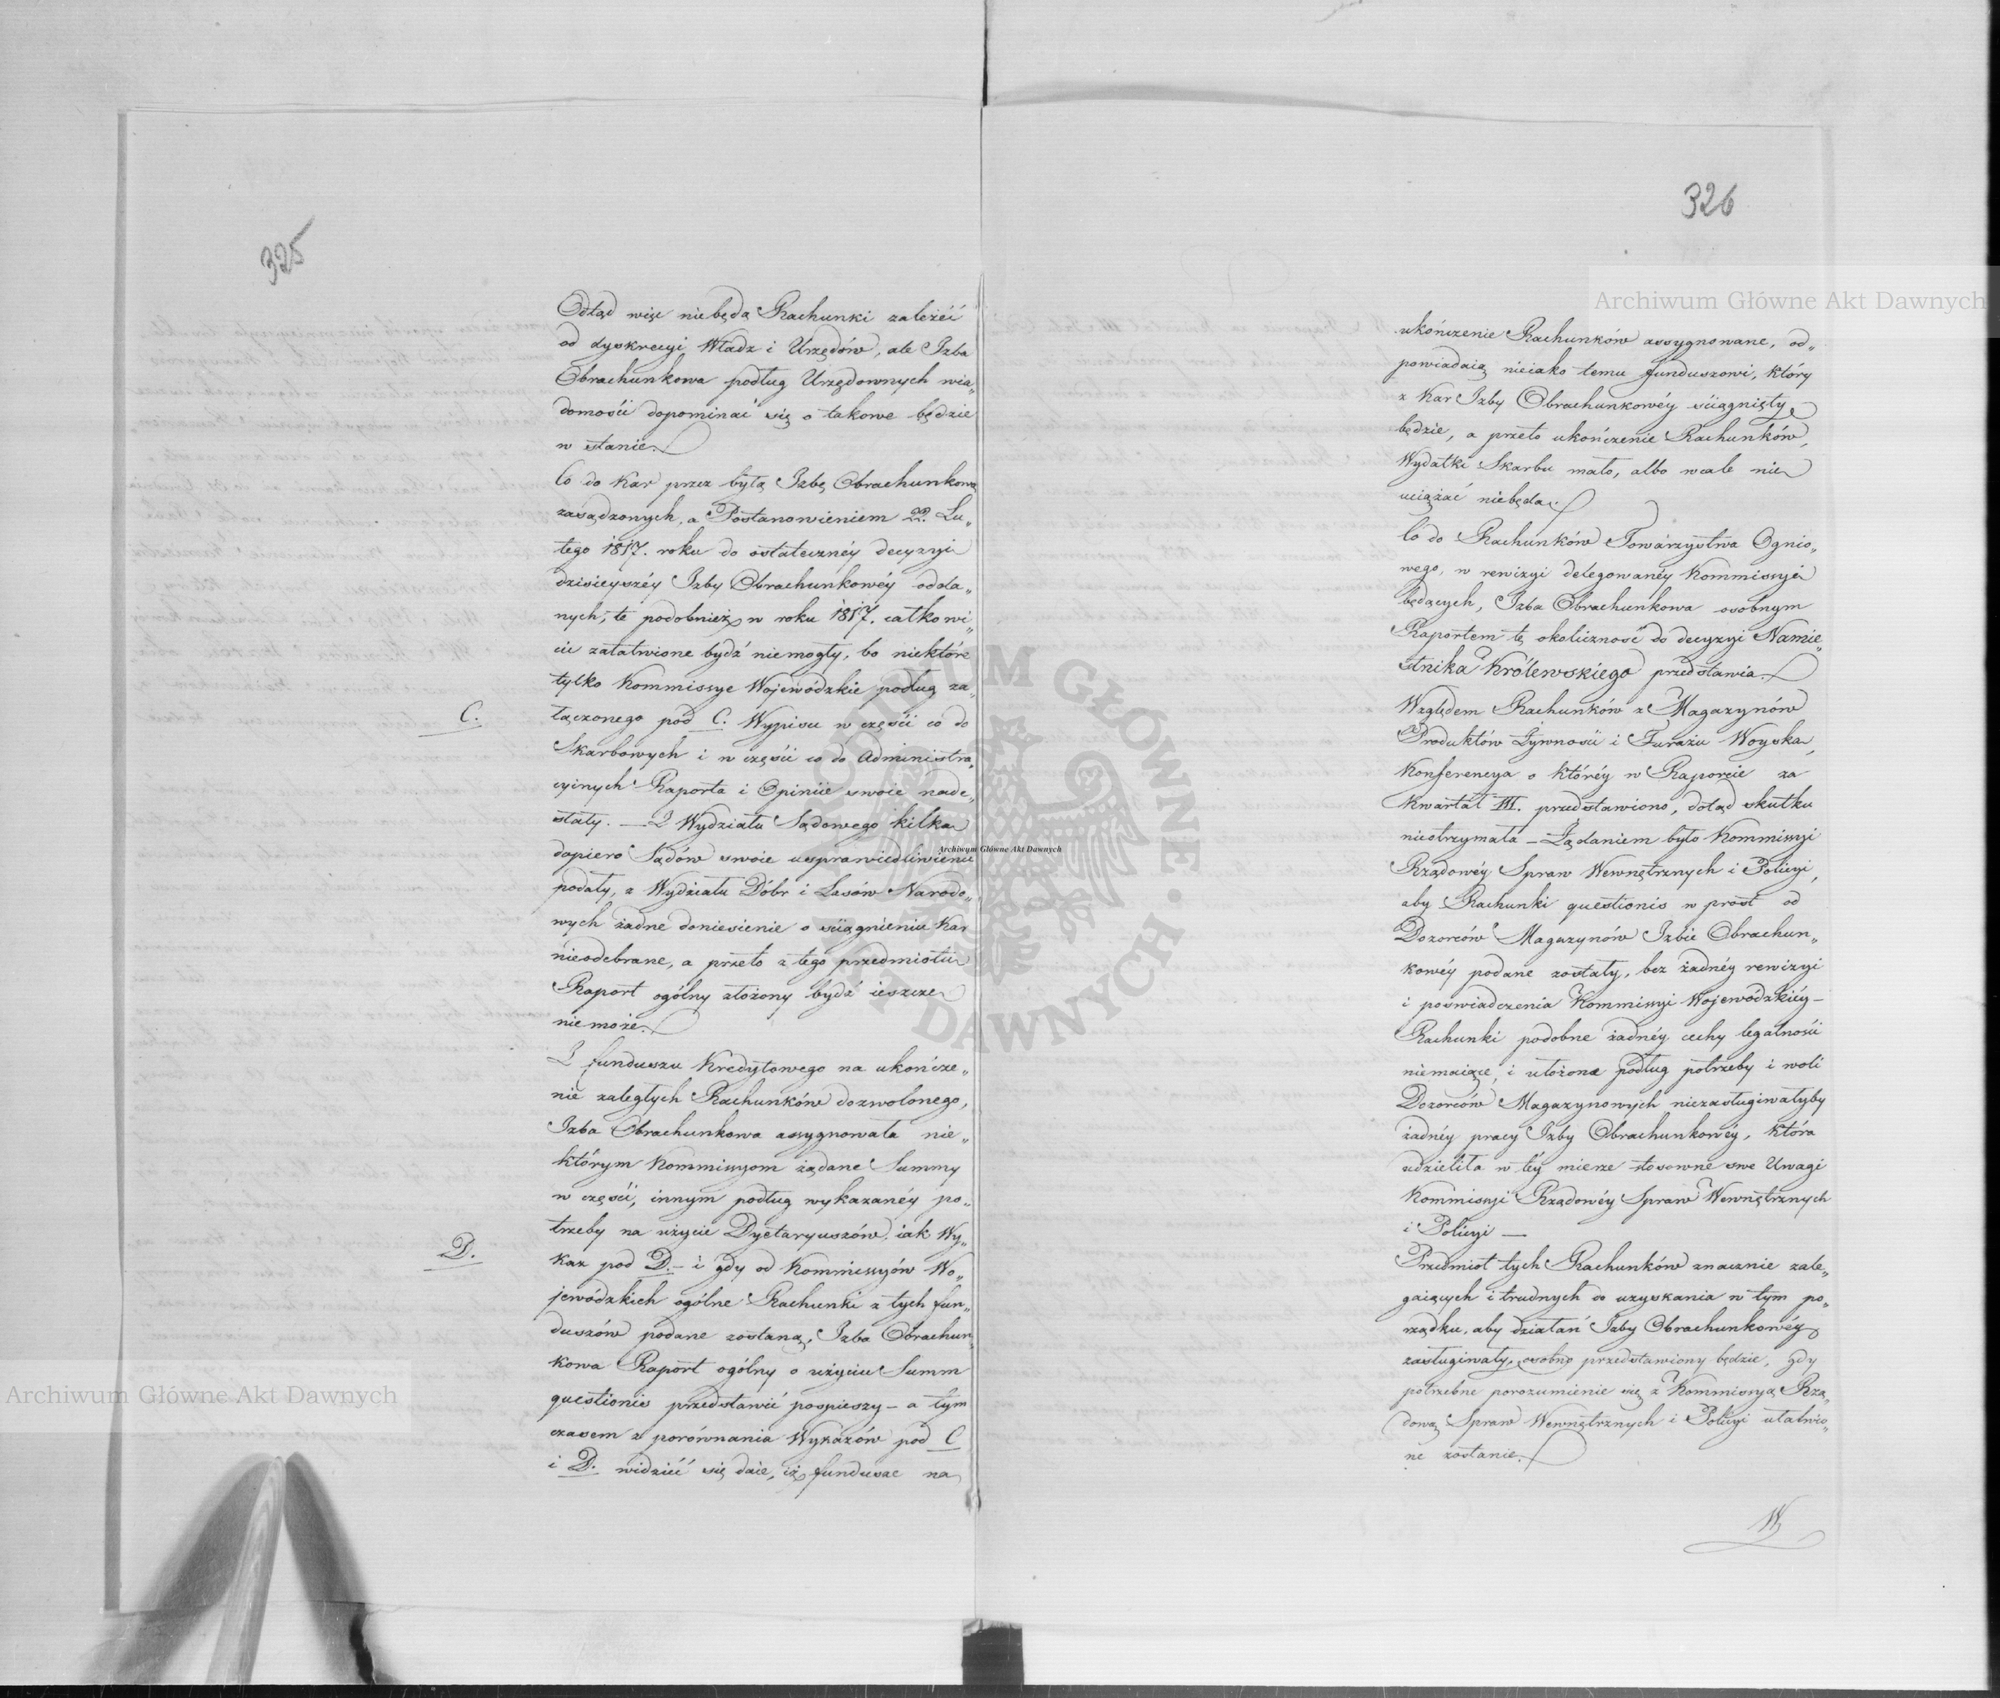 325
Odtąd więc niebędą Rachunki zależéć
od dyskrecyi Władz i Urzędów, ale Izba
Obrachunkowa podług Urzędownych wia„
domości dopominać się o takowe będzie
w stanie.
Co do Kar przez byłą Izbę Obrachunkową
zasądzonych, a Postanowieniem 22. Lu„
tego 1817. roku do ostatecznéy decyzyi
dzisieyszéy Izby Obrachunkowéy odda„
nych, te podobnież w roku 1817. całkowi„
cie załatwione bydź niemogły, bo niektóre
tylko Kommissye Wojewódzkie podług za„
C.
łączonego pod C. Wypisu w części co do
Skarbowych i w części co do Administra„
cyinych Raporta i Opinie swoie nade„
słały. — Z Wydziału Sądowego kilka
dopiero Sądów swoie usprawiedliwienie
podały, z Wydziału Dóbr i Lasów Narodo„
wych żadne doniesienie o ściągnieniu Kar
nieodebrane, a przeto z tego przedmiotu
Raport ogólny złożony bydź ieszcze
niemoże.
Z funduszu Kredytowego na ukończe„
nie zaległych Rachunków dozwolonego,
Izba Obrachunkowa assygnowała nie„
którym Kommissyom żądane Summy
w części, innym podług wykazanéy po„
trzeby na użycie Dyetaryuszów, iak Wy„
D.
kaz pod D. – i gdy od Kommissyów Wo„
jewódzkich ogólne Rachunki z tych fun„
duszów podane zostaną, Izba Obrachun„
kowa Raport ogólny o użyciu Summ
questionis przedstawić pospieszy – a tym
czasem z porównania Wykazów pod C
i D. widziéć się daie, iż fundusze na
326
ukończenie Rachunków assygnowane, od„
powiadaią nieiako temu funduszowi, który
z Kar Izby Obrachunkowéy ściągnięty
będzie, a przeto ukończenie Rachunków,
Wydatki Skarbu mało, albo wcale nie
uciążać niebędą.
Co do Rachunków Towarzystwa Ognio„
wego, w rewizyi delegowanéy Kommissyi
będących, Izba Obrachunkowa osobnym
Raportem tę okoliczność do decyzyi Namie„
stnika Królewskiego przedstawia.
Względem Rachunków z Magazynów
Produktów Żywności i Furażu Woyska,
Konferencya o któréy w Raporcie za
Kwartał III. przedstawiono, dotąd skutku
nieotrzymała – Żądaniem było Kommissyi
Rządowéy Spraw Wewnętrznych i Policyi,
aby Rachunki questionis w prost od
Dozorców Magazynów Izbie Obrachun„
kowéy podane zostały, bez żadnéy rewizyi
i poswiadczenia Kommissyi Wojewódzkiéy –
Rachunki podobne żadnéy cechy legalności
niemaiące, i ułożone podług potrzeby i woli
Dozorców Magazynowych niezasługiwałyby
żadnéy pracy Izby Obrachunkowéy, która
udzieliła w téy mierze stosowne swe Uwagi
Kommissyi Rządowéy Spraw Wewnętrznych
i Policyi —
Przedmiot tych Rachunków znacznie zale„
gaiących i trudnych do uzyskania w tym po„
rządku, aby działań Izby Obrachunkowéy
zasługiwały, osobno przedstawiony będzie, gdy
potrzebne porozumienie się z Kommissyą Rzą„
dową Spraw Wewnętrznych i Policyi ułatwio„
ne zostanie.
W
Archiwum Główne Akt Dawnych
Archiwum Główne Akt Dawnych
Archiwum Główne Akt Dawnych